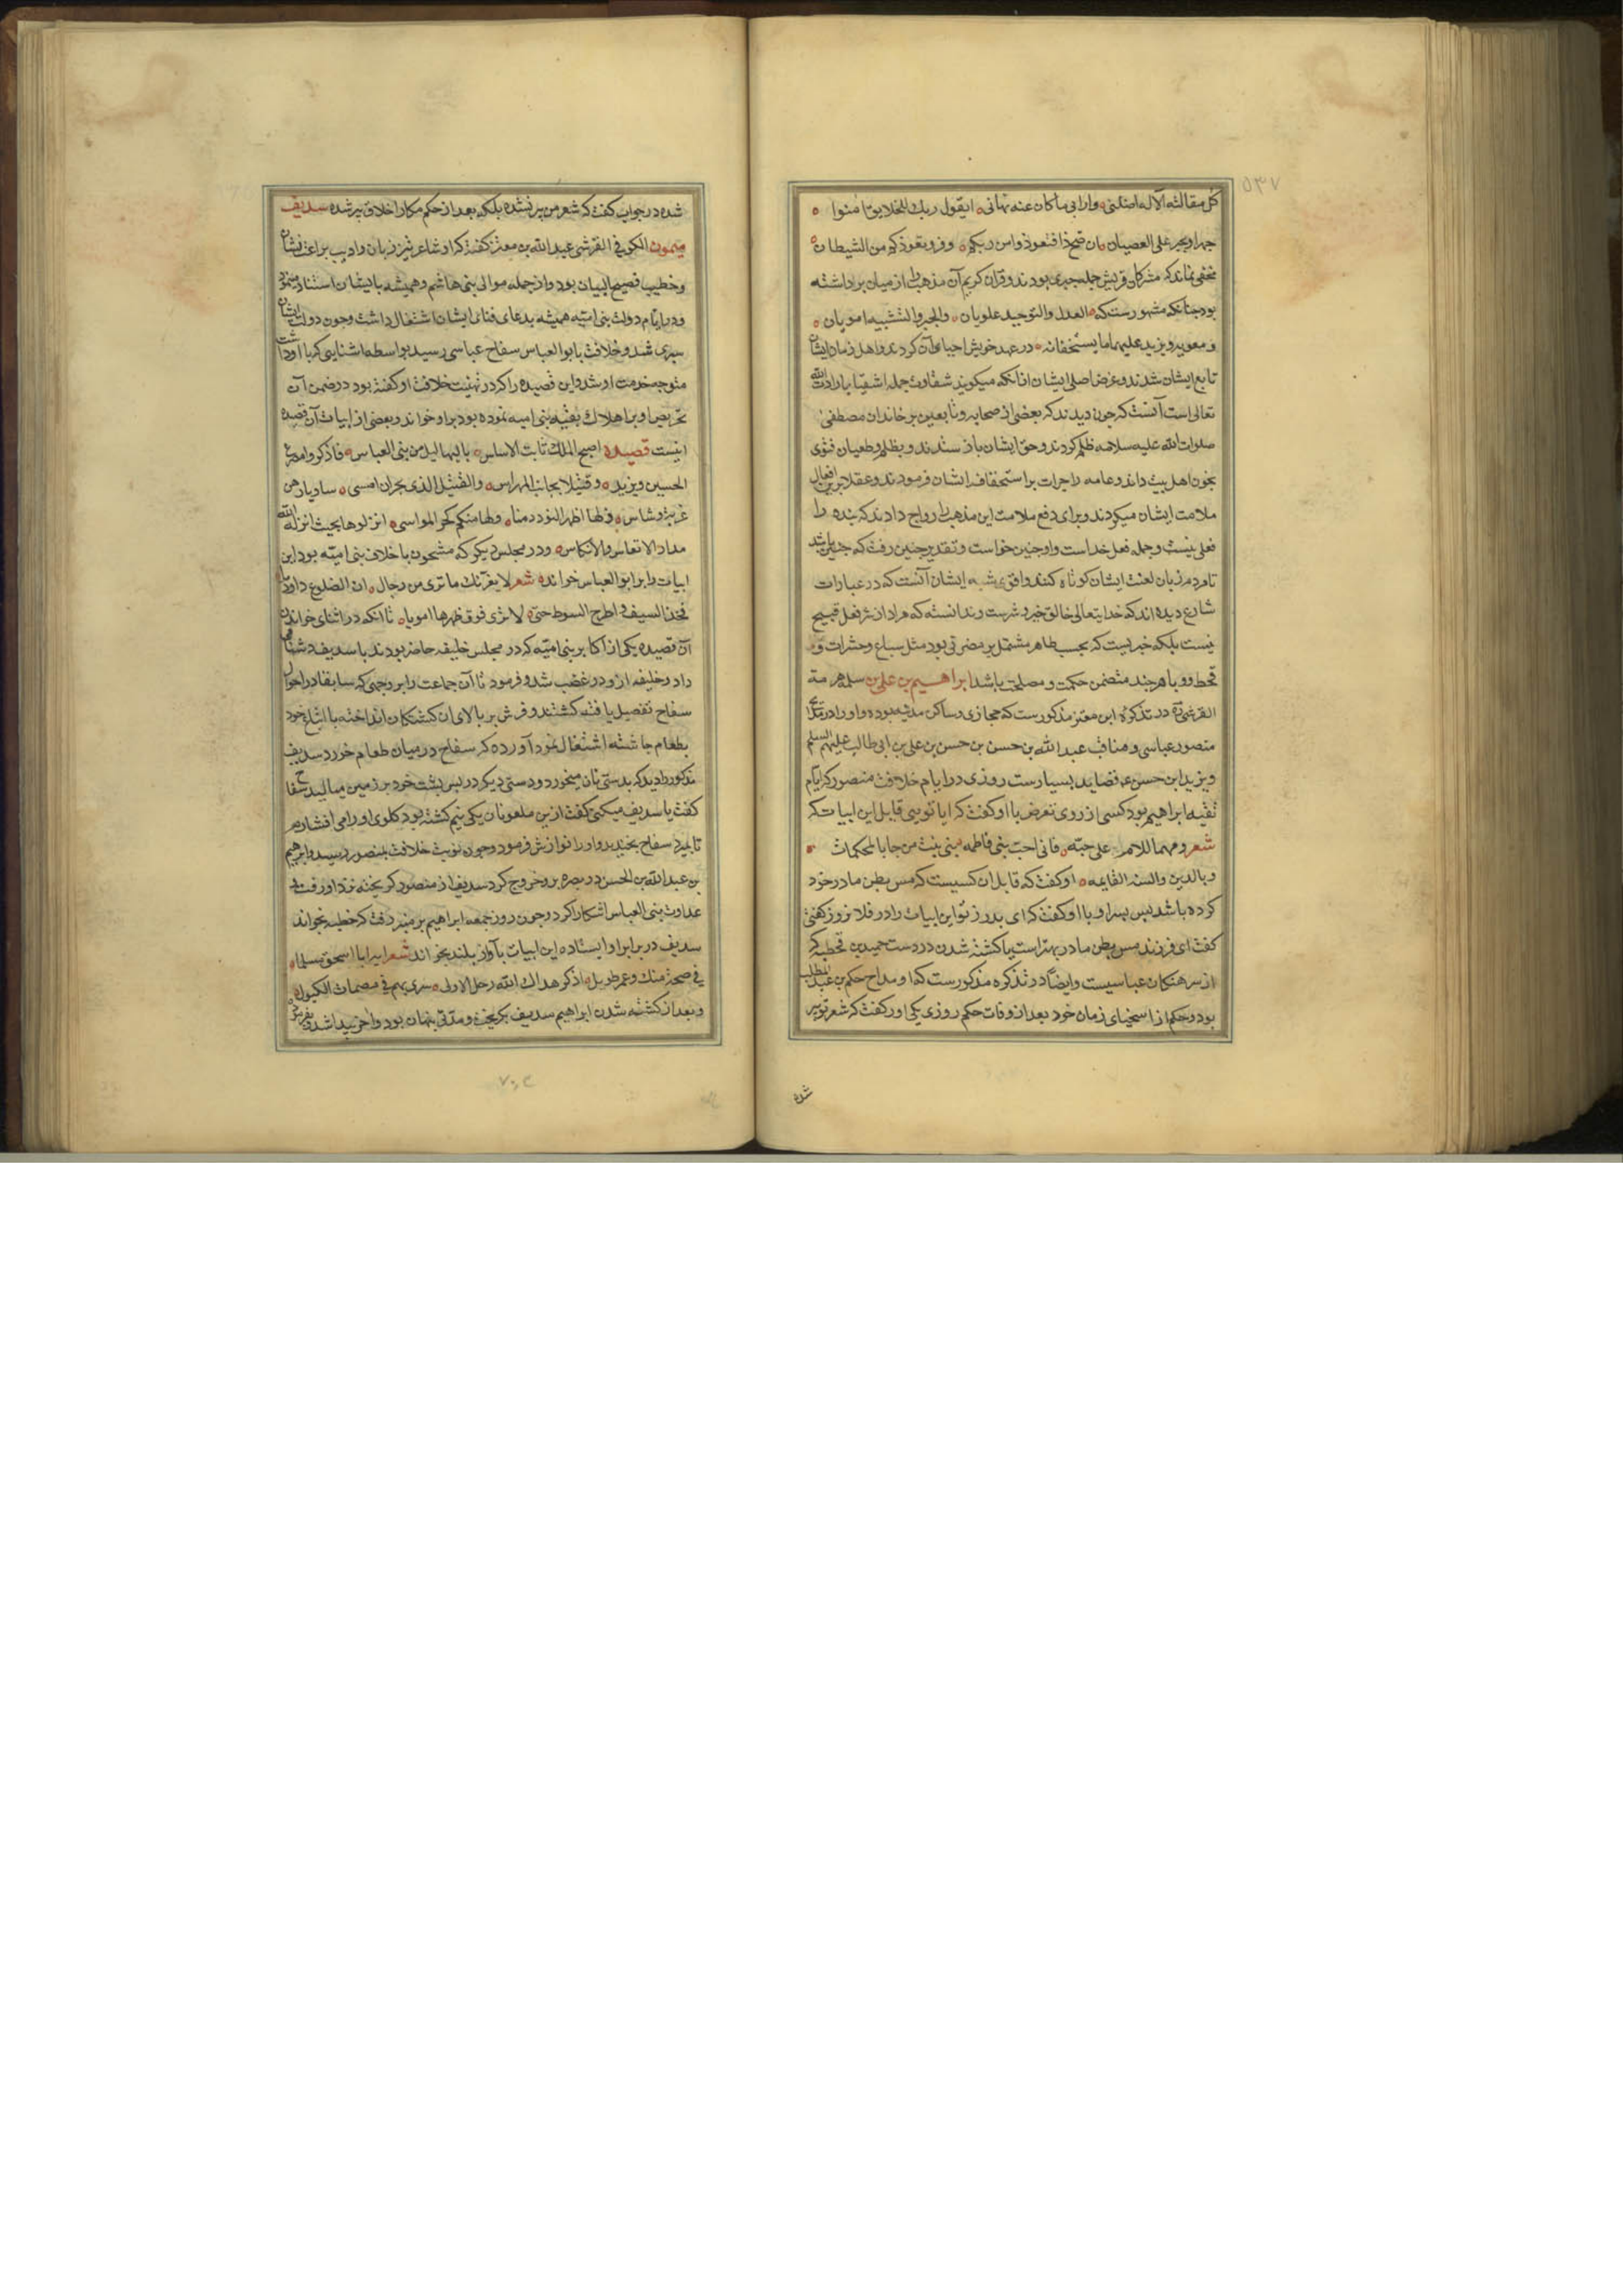 ۵۳۷
کل مقالته الآله اضلنی وارابی ماکان عنه نهانی ایقول ربك للخلایق امنوا
جهرا ویجبر علی العصیان ان صح ذا فتعوذوا من ربکم وذروا تعوذکم من الشیطان
مخفی نماند که مشرکان قریش جمله جبری بودند و قران کریم آن مذهب را از میان برداشته
بود چنانکه مشهورست که العدل والتوحید علویان والجبر والتشبیه امویان
و معویه و یزید علیهما ما یستحقانه در عهد خویش احیا آن کردند و اهل زمان ایشان
تابع ایشان شدند و غرض اصلی ایشان از انکه میگویند شقاوت جمله اشقیا بارادت الله
تعالی است آنست که چون دیدند که بعضی از صحابه و تابعین بر خاندان مصطفی
صلوات الله علیه سلامه ظلم کردند و حق ایشان باز ستدند و بظلم و طغیان فتوی
بخون اهل بیت دادند و عامه را جرات بر استخفاف ایشان فرمودند و عقلا برین افعال
ملامت ایشان میکردند و برای دفع ملامت این مذهب را رواج دادند که بنده را
فعلی نیست و جمله فعل خداست و او چنین خواست و تقدیر چنین رفت که چنین باشد
تا مردم زبان لعنت ایشان کوتاه کنند و اقوی شبه ایشان آنست که در عبارات
شارع دیده اند که خدایتعالی خالق خیر و شرست و ندانسته که مراد از شر فعل قبیح
نیست بلکه خبریست که بحسب ظاهر مشتمل بر مضرتی بود مثل سباع و حشرات و
قحط و وبا هر چند متضمن حکمت و مصلحت باشد ابراهیم بن علی بن سلمه هرمة
القرشی در تذکره ابن معتز مذکورست که حجازی و ساکن مدینه بوده و او را در مدح
منصور عباسی و مناقب عبد الله بن حسن بن حسن بن علی بن ابی طالب علیهم السلم
و یزید ابن حسن قصاید بسیارست روزی در ایام خلافت منصور که ایام
تقیه ابراهیم بود کسی از روی تعرض با او کفت که ایا تویی قایل این ابیات که
شعر و مهما الام علی حبه فانی احب بنی فاطمه بنی بنت من جا بالمحکمات
و بالدین والسنه القایمه او کفت که قایل ان کسیست که مس بظر مادر خود
کرده باشد پس پسر او با او کفت که ای پدر نه تو این ابیات را در فلان روز کفتی
کفت ای فرزند مس بظر مادر بهترست یا کشته شدن در دست حمید بن قحطبه که
از سرهنکان عباسیست وایضا در تذکره مذکورست که او مداح حکم بن عبد المطلب
بود و حکم از اسخیای زمان خود بعد از وفات حکم روزی یکی او را کفت که شعر تو پیر
شده
شده در جواب کفت که شعر من پیر نشده بلکه بعد از حکم مکارم اخلاق پیر شده سدیف
میمون الکوفی القرشی عبد الله بن معتز کفته که او شاعر تیز زبان و ادیب براعت نشان
و خطیب فصیح البیان بود و از جمله موالی بنی هاشم و همیشه بایشان استناد مینمود
و در ایام دولت بنی امیه همیشه بدعای فنای ایشان اشتغال داشت و چون دولت ایشان
سپری شد و خلافت بابو العباس سفاح عباسی رسید بواسطه اشنایی که با او داشت
متوجه خدمت او شد و این قصیده را که در تهنیت خلافت او کفته بود در ضمن آن
تحریص او بر اهلاك بقیه بنی امیه نموده بود بر او خواند و بعضی از ابیات آن قصیده
اینست قصیده اصبح الملك ثابت الاساس بالبهالیل من بنی العباس فاذکروا مصرع
الحسین و یزید و قتیلا بجانب المهراس والقتیل الذی بحران امسی ثاویا رهن
غربة و تناس ذلها اظهر التودد منها و لها منکم کحز المواسی انزلوها بحیث انزلها الله
بدار الاتعاس والانکاس و در مجلس دیکر که مشحون باخلاف بنی امیه بود این
ابیات را بر ابو العباس خوانده شعر لا یغرنك ما تری من رجال ان الضلوع داء دویا
فخذ السیف و اطرح السوط حتی لا تری فوق ظهرها امویا تا انکه در اثنای خواندن
آن قصیده یکی از اکابر بنی امیه که در مجلس خلیفه حاضر بودند با سدیف دشنامی
داد و خلیفه ازو در غضب شد و فرمود تا آن جماعت را بر وجهی که سابقا در احوال
سفاح تفصیل یافته کشتند و فرش بر بالای ان کشتکان انداخته با اتباع خود
بطعام چاشته اشتغال نمود آورده که سفاح در میان طعام خوردن سدیف
مذکور را دید که بدستی نان میخورد و دستی دیکر در پس پشت خود بر زمین میمالید سفاح
کفت یا سدیف چه میکنی کفت ازین ملعونان یکی نیم کشته بود کلوی او را می افشارم
تا بمیرد سفاح بخندید و او را نوازش فرمود و چون نوبت خلافت بمنصور رسید و ابراهیم
بن عبد الله بن الحسن در بصره برو خروج کرد سدیف از منصور کریخته نزد او رفت و
عداوت بنی العباس اشکارا کرد و چون روز جمعه ابراهیم بر منبر رفت که خطبه بخواند
سدیف در برابر او ایستاده این ابیات بآواز بلند بخواند شعر ایه ابا اسحق مسلما
فی صحة منك و عمر طویل اذکر هداك الله رحل الاولی سری بهم فی مصمات الکبول
و بعد از کشته شدن ابراهیم سدیف بکریخت و مدتی پنهان بود و اخر پیدا شد و